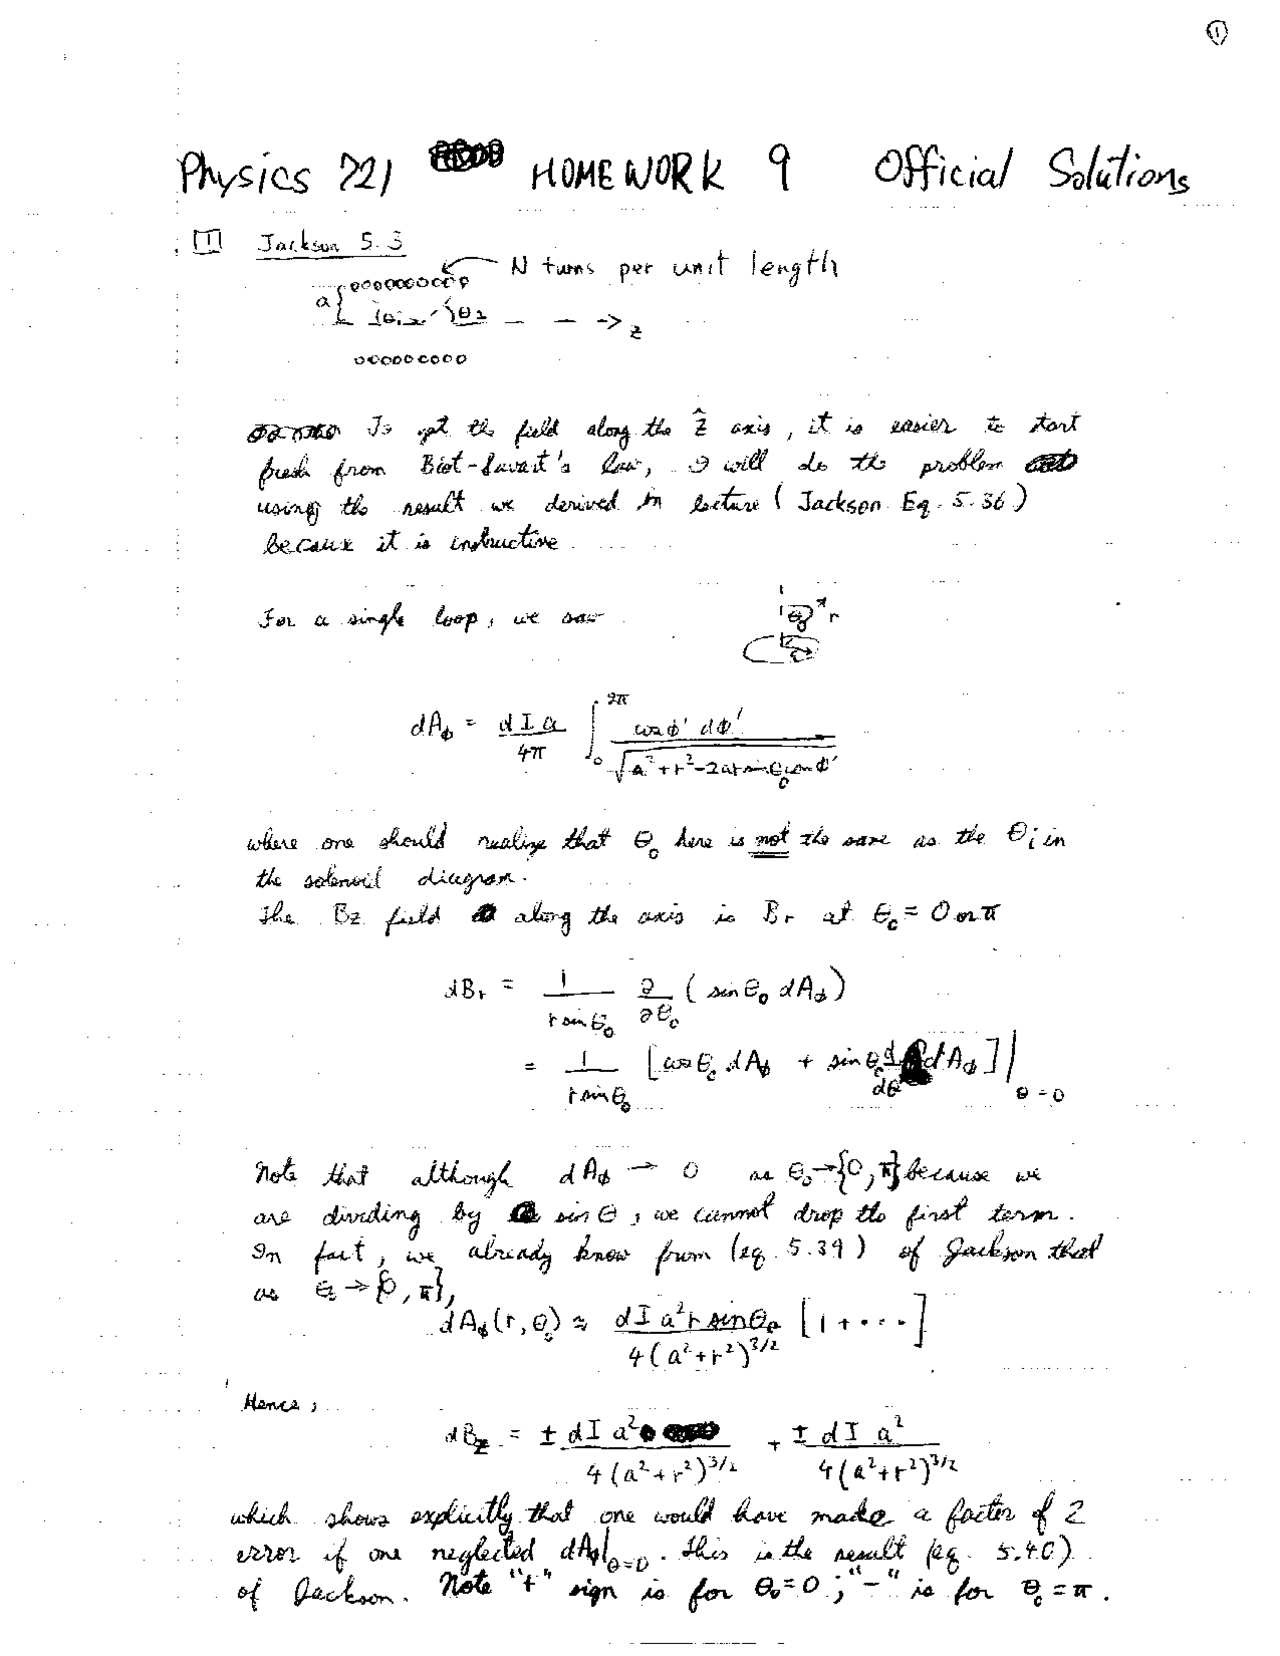 ①
Physics 721 HOMEWORK 9 Official Solutions
[1] Jackson 5.3
N turns per unit length
a{ θ₁ θ₂ - - -> z
To get the field along the ẑ axis, it is easier to start
fresh from Biot-Savart's law, I will do the problem
using the result we derived in lecture (Jackson Eq. 5.36)
because it is instructive
For a single loop, we saw
θ₀ r
dA_φ = dI a / 4π ∫₀^{2π} cos φ' dφ' / √(a²+r²-2ar sin θ₀ cos φ')
where one should realize that θ₀ here is not the same as the θᵢ in
the solenoid diagram.
The Bz field along the axis is Br at θ₀ = 0 or π
dB_r = 1/(r sin θ₀) ∂/∂θ₀ (sin θ₀ dA_φ)
= 1/(r sin θ₀) [cos θ₀ dA_φ + sin θ₀ d/dθ dA_φ]|_{θ=0}
Note that although dA_φ → 0 as θ₀→{0, π} because we
are dividing by sin θ, we cannot drop the first term.
In fact, we already know from (eq. 5.39) of Jackson that
as θ₀ → {0, π},
dA_φ(r, θ₀) ≈ dI a² r sin θ₀ / 4(a²+r²)^{3/2} [1 + ···]
Hence,
dB_z = ± dI a² / 4(a²+r²)^{3/2} + ± dI a² / 4(a²+r²)^{3/2}
which shows explicitly that one would have made a factor of 2
error if one neglected dA_φ|_{θ=0}. This is the result (eq. 5.40)
of Jackson. Note "+" sign is for θ₀=0 ; "-" is for θ₀ = π.